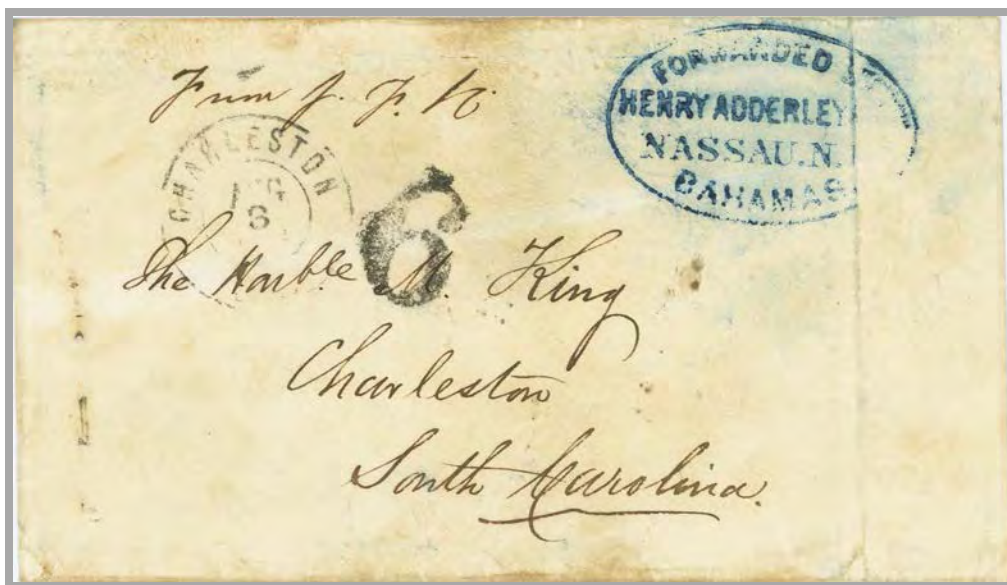 From J. F. K.
FORWARDED
HENRY ADDERLEY
NASSAU. N.
BAHAMAS
CHARLESTON
6
The Honble M. King
Charleston
South Carolina.